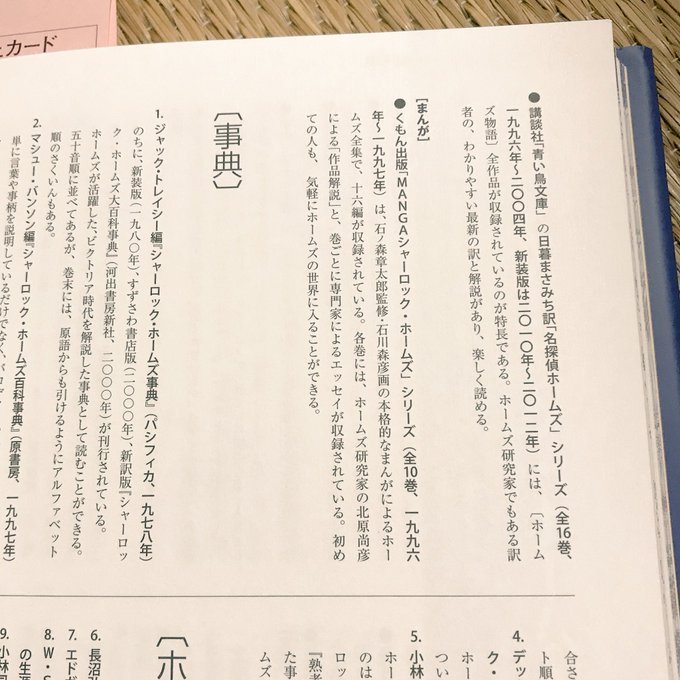 カード
●講談社「青い鳥文庫」の日暮まさみち訳「名探偵ホームズ」シリーズ（全16巻、
一九九六年〜二〇〇四年、新装版は二〇一〇年〜二〇一二年）には、〔ホーム
ズ物語〕全作品が収録されているのが特長である。ホームズ研究家でもある訳
者の、わかりやすい最新の訳と解説があり、楽しく読める。
［まんが］
●くもん出版「MANGAシャーロック・ホームズ」シリーズ（全10巻、一九九六
年〜一九九七年）は、石ノ森章太郎監修・石川森彦画の本格的なまんがによるホー
ムズ全集で、十六編が収録されている。各巻には、ホームズ研究家の北原尚彦
による「作品解説」と、巻ごとに専門家によるエッセイが収録されている。初め
ての人も、気軽にホームズの世界に入ることができる。
［事典］
1. ジャック・トレイシー編『シャーロック・ホームズ事典』（パシフィカ、一九七八年）
のちに、新装版（一九八〇年）、すずざわ書店版（二〇〇〇年）、新訳版『シャーロッ
ク・ホームズ大百科事典』（河出書房新社、二〇〇〇年）が刊行されている。
ホームズが活躍した、ビクトリア時代を解説した事典として読むことができる。
五十音順に並べてあるが、巻末には、原語からも引けるようにアルファベット
順のさくいんもある。
2. マシュー・バンソン編『シャーロック・ホームズ百科事典』（原書房、一九九七年）
単に言葉や事柄を説明しているだけでなく、
合さ
ト順
4. デッ
ク・
つい
ホー
5. 小林
ホー
のは
ロッ
『熟考
た事
ムズ
［ホ
6. 長沼
7. エドガ
8. W・S
の生涯
9. 小林